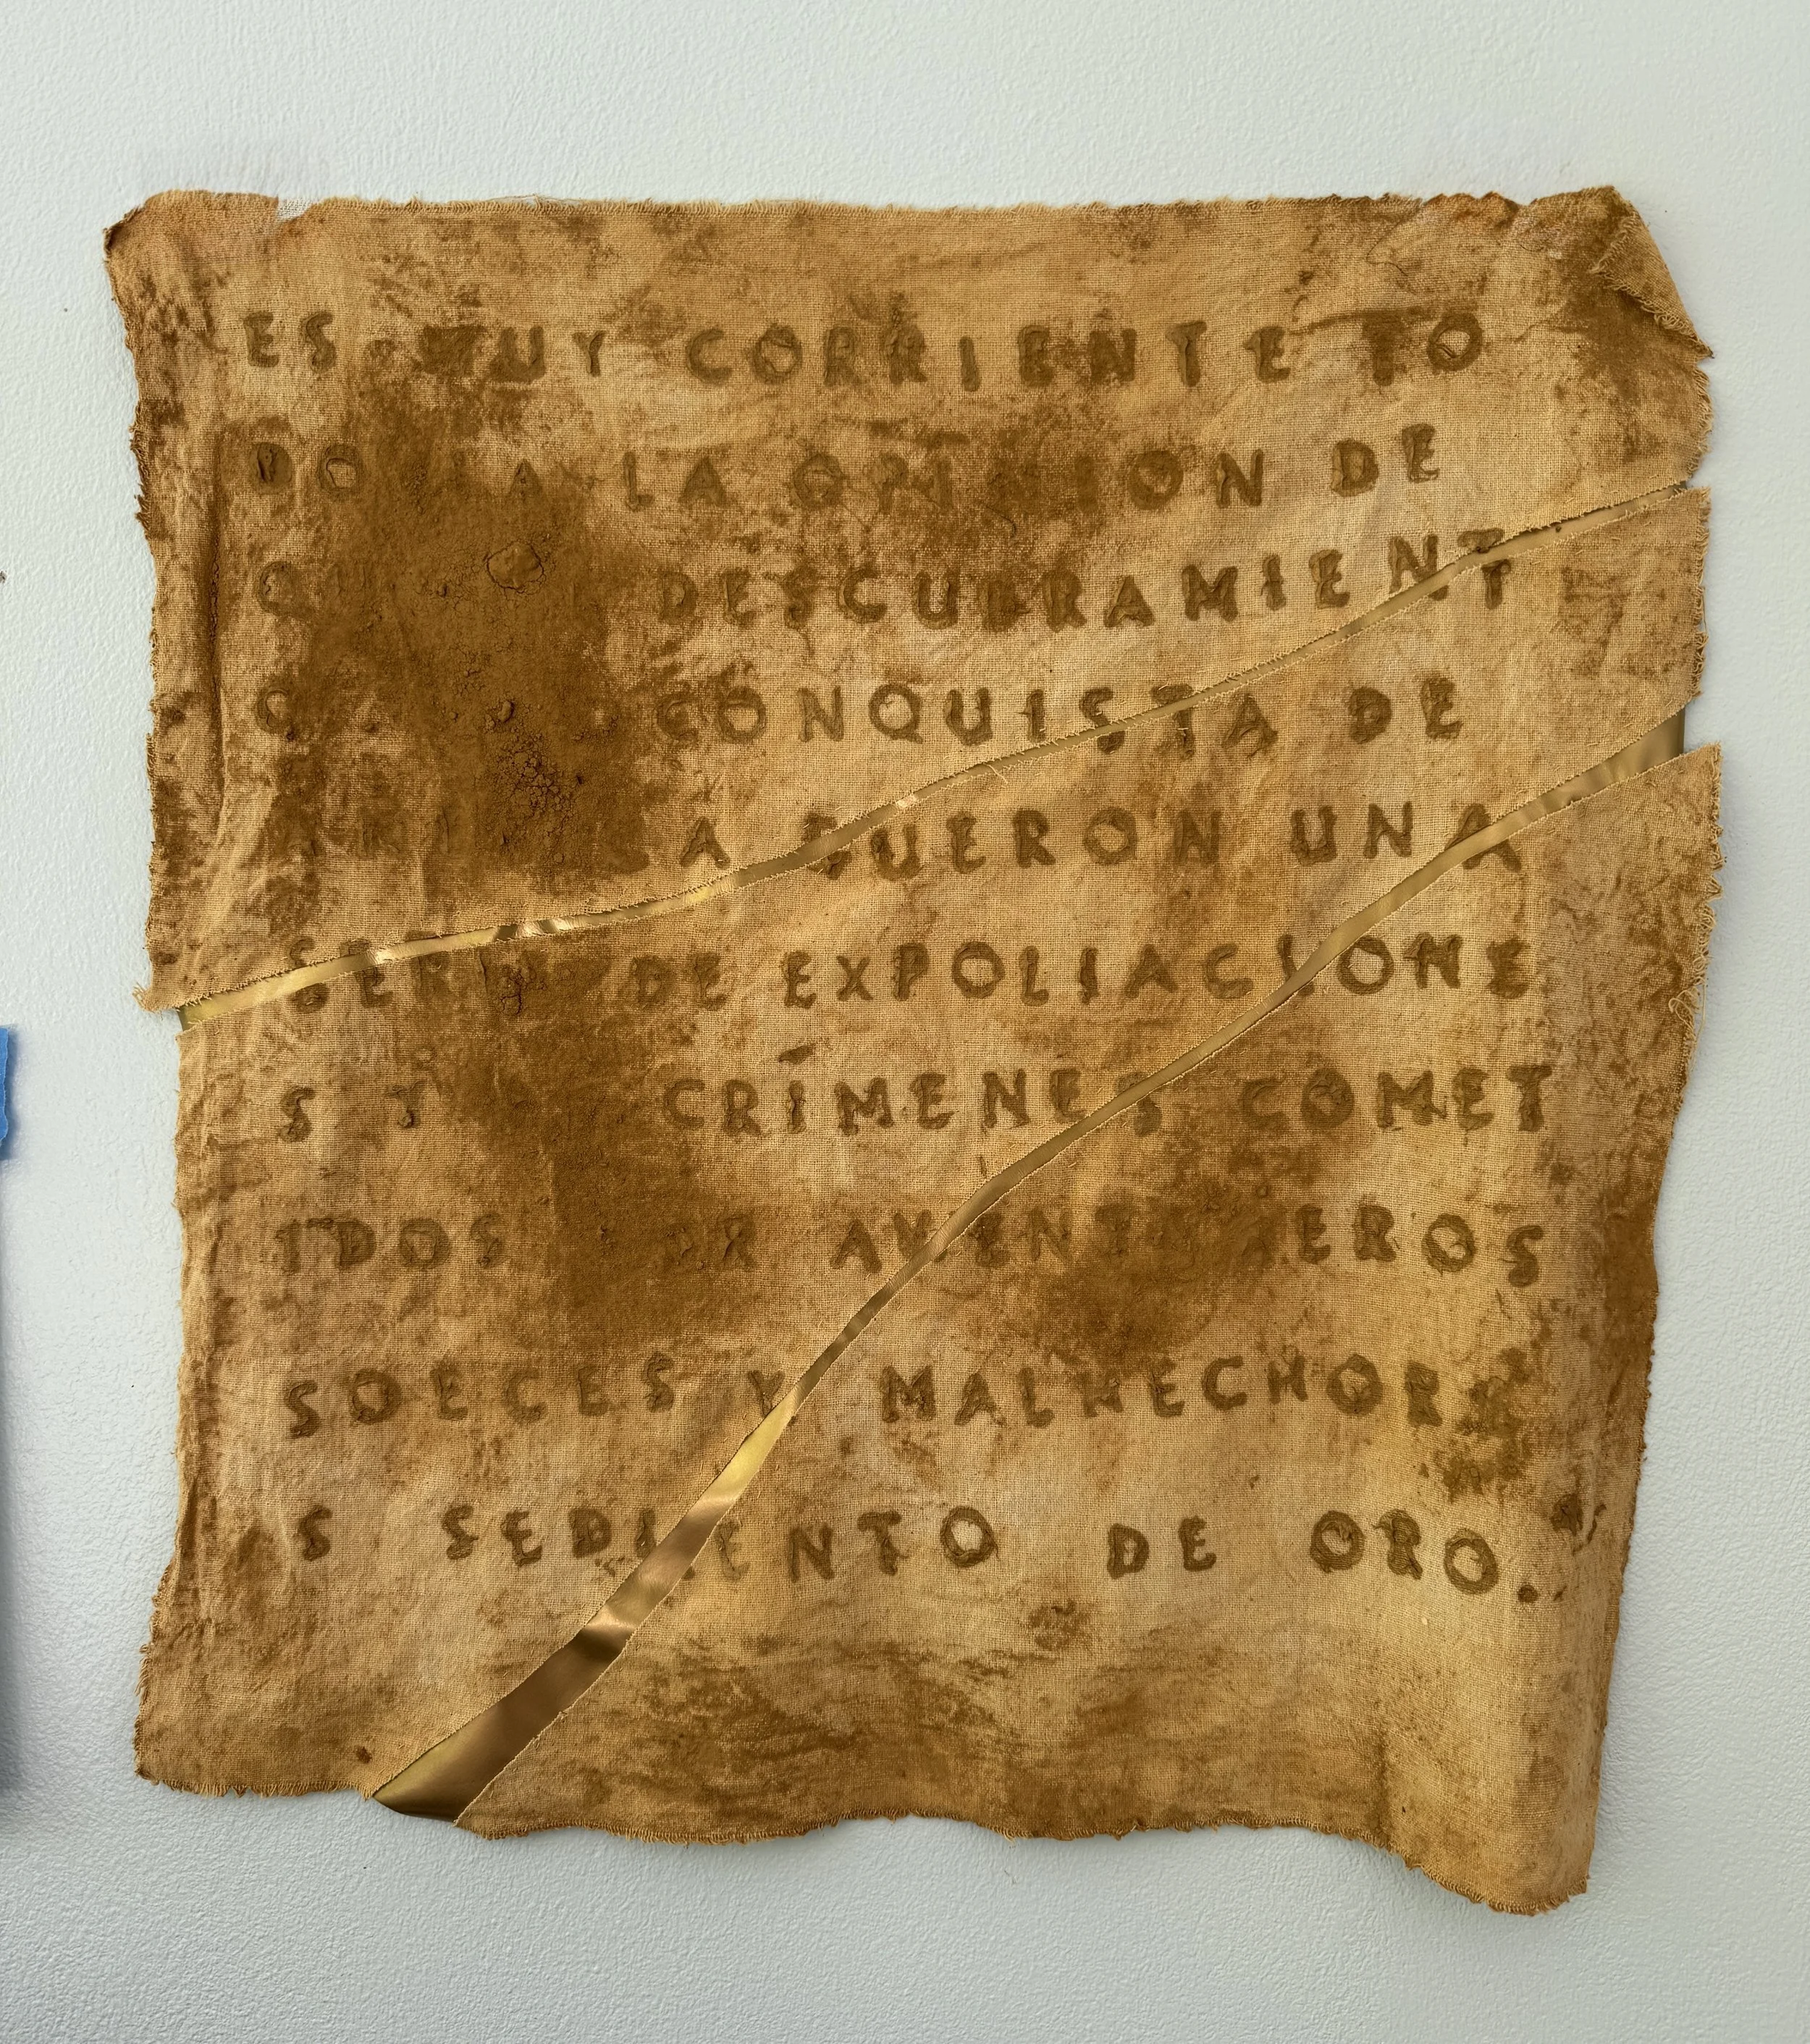 ES MUY CORRIENTE TO
DO A LA OPINION DE
DESCUBRAMIENT
CONQUISTA DE
FUERON UNA
SERIE DE EXPOLIACIONE
S Y CRÍMENES COMET
IDOS POR AVENTUREROS
SOECES Y MALHECHORE
S SEDIENTO DE ORO.